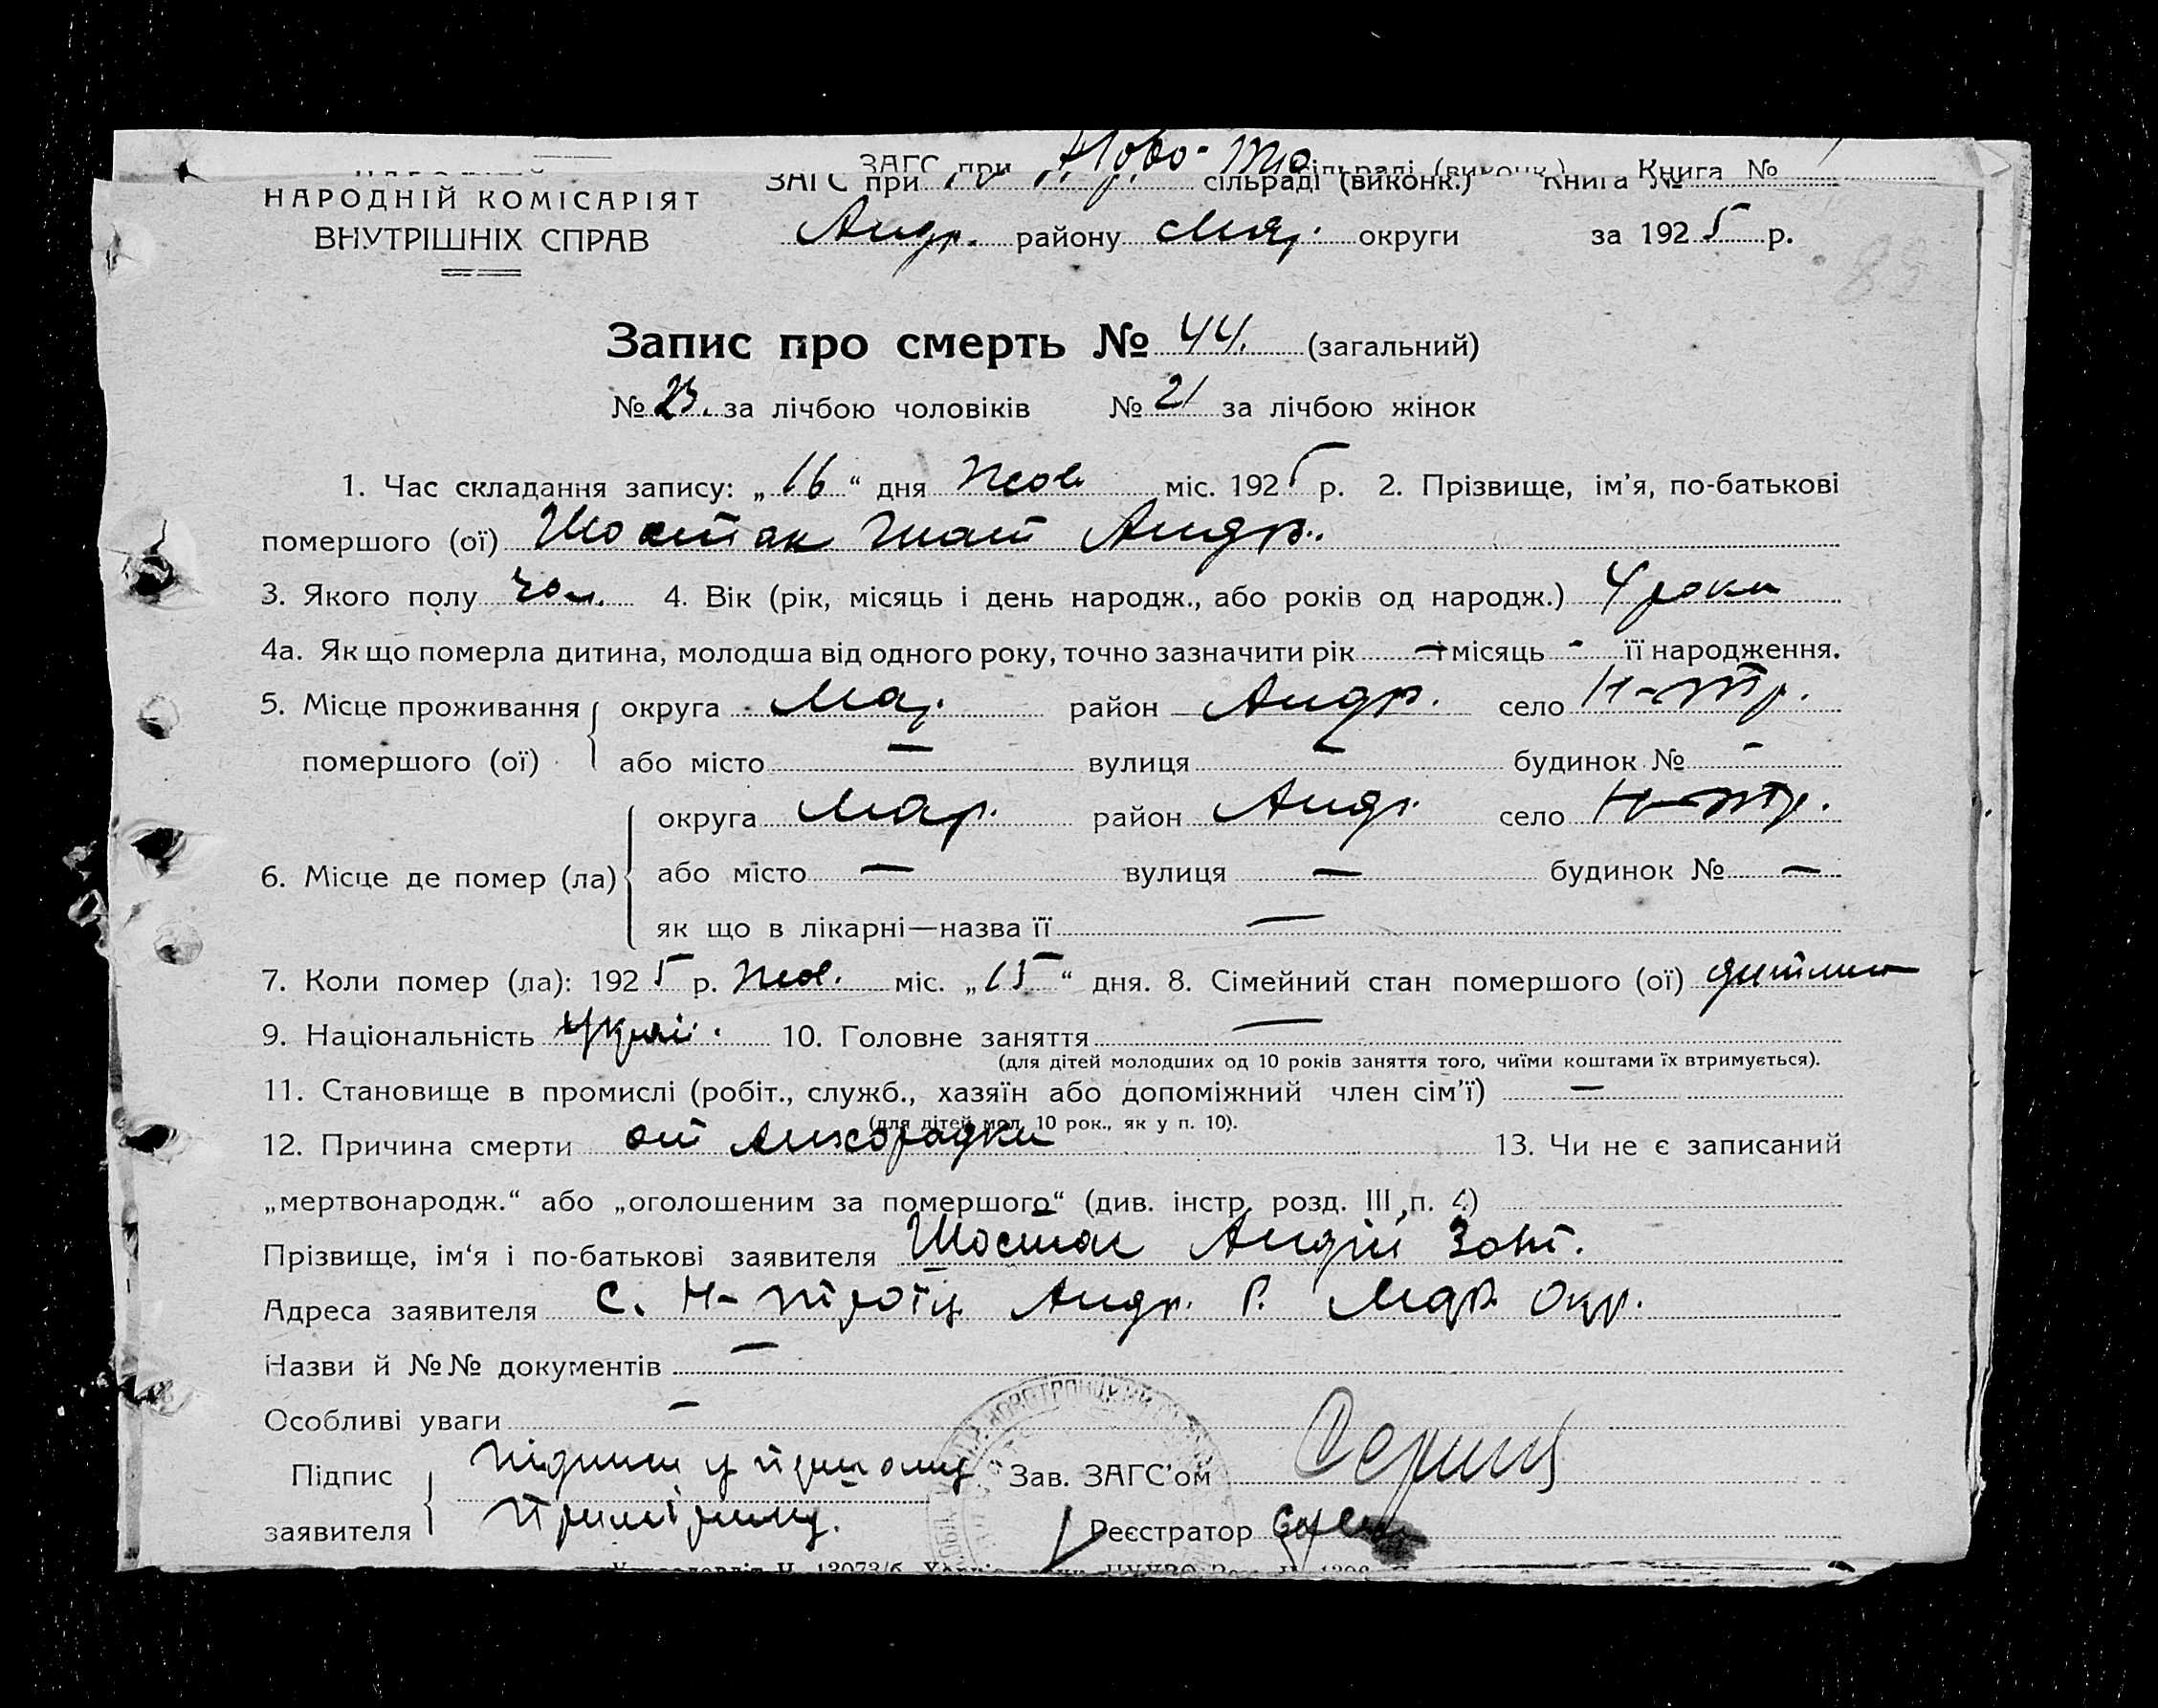 ЗАГС при Ново- сільраді (виконк.) Книга №
НАРОДНІЙ КОМІСАРІЯТ ЗАГС при сільраді (виконк.) Книга №
ВНУТРІШНІХ СПРАВ Андр. району Мар. округи за 1925 р.
Запис про смерть № 44. (загальний)
№ 23. за лічбою чоловіків № 21 за лічбою жінок
1. Час складання запису: „16“ дня Жов міс. 1925 р. 2. Прізвище, ім'я, по-батькові
помершого (ої) Шостак Гнат Андр.
3. Якого полу чол. 4. Вік (рік, місяць і день народж., або років од народж.) 4 роки
4а. Як що померла дитина, молодша від одного року, точно зазначити рік — місяць - її народження.
5. Місце проживання округа Мар. район Андр. село Н-Тр.
помершого (ої) або місто — вулиця — будинок № -
округа Мар. район Андр село Н-Тр.
6. Місце де помер (ла) або місто — вулиця — будинок № —
як що в лікарні—назва її —
7. Коли помер (ла): 1925 р. Жов. міс. „15“ дня. 8. Сімейний стан помершого (ої) дитина
9. Національність Украї. 10. Головне заняття —
(для дітей молодших од 10 років заняття того, чиїми коштами їх втримується).
11. Становище в промислі (робіт., служб., хазяїн або допоміжний член сім'ї) —
(для дітей мол. 10 рок., як у п. 10).
12. Причина смерти от лихорадки 13. Чи не є записаний
„мертвонародж.“ або „оголошеним за помершого“ (див. інстр. розд. III п. 4)
Прізвище, ім'я і по-батькові заявителя Шостак Андрій Зот.
Адреса заявителя с. Н-Троїц Андр. Р. Мар. Окр.
Назви й №№ документів —
Особливі уваги -
Підпис підпис у Зав. ЗАГС'ом
заявителя примірнику. Реєстратор